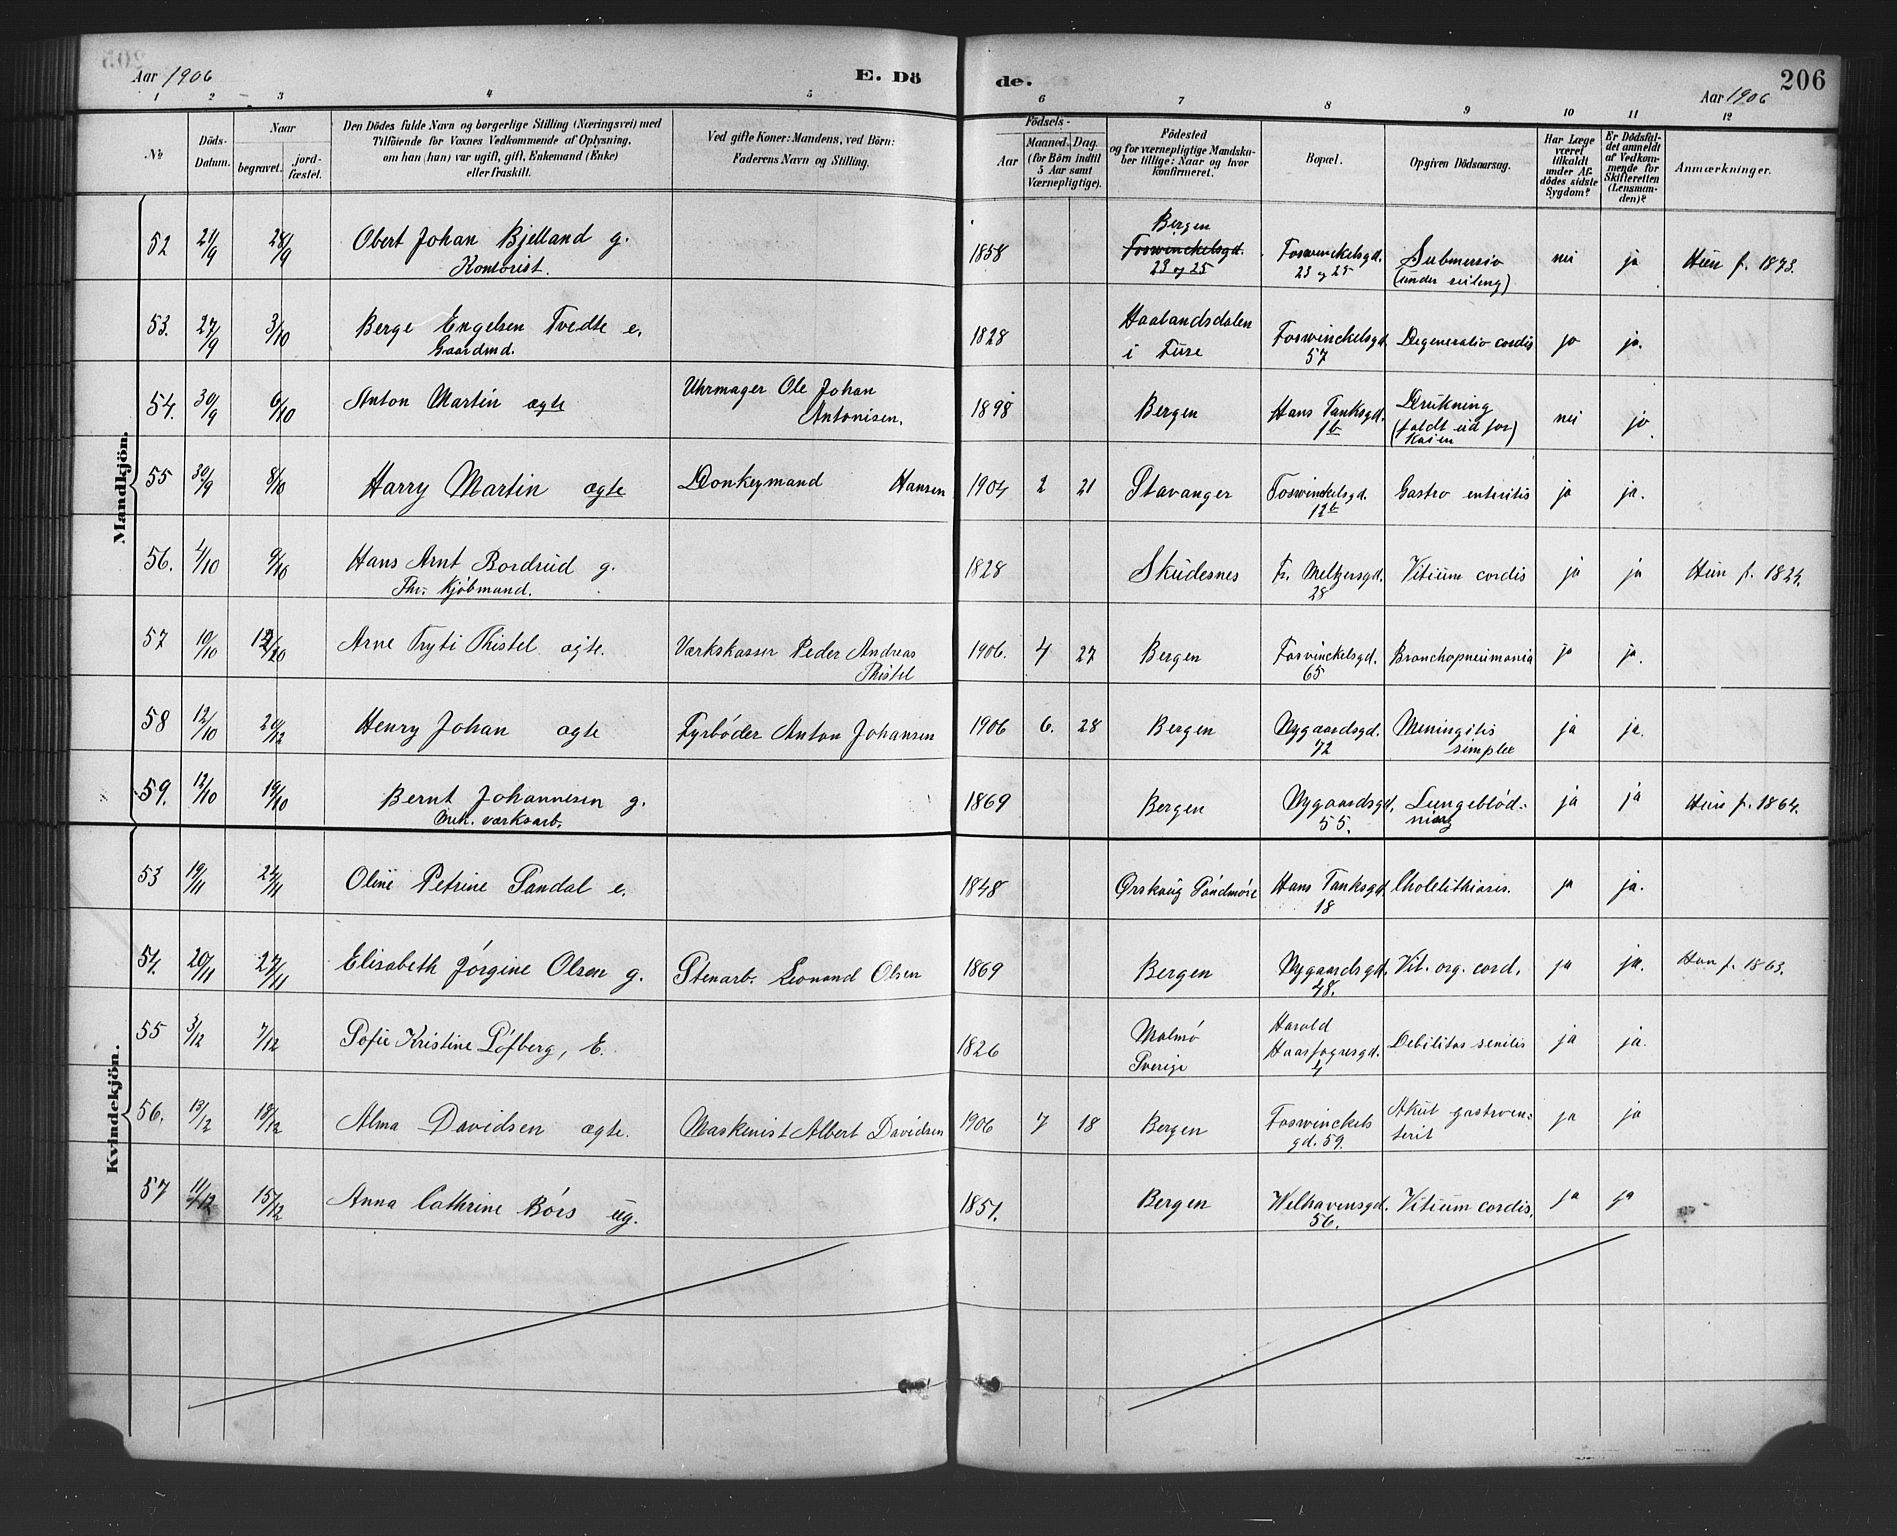 Aar 1906
E. Dö
de.
Aar 1906
206
1 2 3 4 5 6 7 8 9 10 11 12
No
Döds-
Datum.
Naar
begravet.
jord-
fæstet.
Den Dödes fulde Navn og borgerlige Stilling (Næringsvei) med
Tilföiende for Voxnes Vedkommende af Oplysning,
om han (hun) var ugift, gift, Enkemand (Enke)
eller fraskilt.
Ved gifte Koner: Mandens, ved Börn:
Faderens Navn og Stilling.
Födsels-
Aar
Maaned. Dag
(for Börn indtil
5 Aar samt
Værnepligtige).
Födested
og for værnepligtige Mandska-
ber tillige: Naar og hvor
konfirmeret.
Bopæl.
Opgiven Dödsaarsag.
Har Læge
været
tilkaldt
under Af-
dödes sidste
Sygdom?
Er Dödsfal-
det anmeldt
af Vedkom-
mende for
Skifteretten
(Lensman-
den)?
Anmærkninger.
Mandkjön.
52 21/9 28/9 Obert Johan Bjelland g. 1858 Bergen Foswinckelsgd. Submersio nei ja Hun f. 1873.
Kontorist. Foswinckelsgd. 23 og 25 23 og 25 (under seiling)
53. 27/9 3/10 Berge Engelsen Tvedte e. 1828 Haalandsdalen Foswinckelsgd. Degeneratio cordis ja ja.
Gaardmd. i Fuse 57
54. 30/9 6/10 Anton Martin ægte Uhrmager Ole Johan 1898 Bergen Hans Tanksgd. Drukning nei ja.
Antonisen. 1b (faldt ud for)
Kaien
55 30/9 8/10 Harry Martin ægte Donkeymand Hansen 1904 2 21 Stavanger Foswinckelsgd. Gastro enteritis ja ja.
12b
56. 4/10 9/10 Hans Arnt Bordrud g. 1828 Skudesnes Fr. Meltzersgd. Vitium cordis ja ja Hun f. 1824.
Fhv. Kjöbmand. 28
57 10/10 /10 Arne Tryti Thistel ægte. Værkskasser Peder Andreas 1906. 4 27 Bergen Fosvinckelsgd. Bronchopneumonia ja ja.
Thistel 65
58 12/10 20/12 Henry Johan ægte Fyrböder Anton Johansen 1906 6. 28 Bergen Nygaardsgd. Meningitis ja ja.
72 simplex
59. 12/10 19/10 Bernt Johannesen g. 1869 Bergen Nygaardsgd. Lungeblöd- ja ja Hun f. 1864.
Mek. værksarb. 55. ning
Kvindekjön.
53 19/11 24/11 Oline Petrine Sandal e. 1848 Ørskaug Söndmöre Hans Tanksgd. Cholelithiasis. ja ja.
18
54. 20/11 27/11 Elisabeth Jörgine Olsen g. Stenarb. Leonard Olsen 1869 Bergen Nygaardsgd. Vit. org. cord. ja ja. Han f. 1863.
48.
55 3/12 7/12 Sofie Kristine Löfberg, E. 1826 Malmö Harald Debilitas senilis ja ja.
Sverige Haarfagresgd.
4
56. 13/12 18/12 Alma Davidsen ægte. Maskinist Albert Davidsen 1906 7 18 Bergen Foswinckels Akut gastroen- ja ja
gd. 59. terit
57 11/12 15/12 Anna Cathrine Börs ug. 1851. Bergen Welhavensgd. Vitium cordis. ja ja
56.